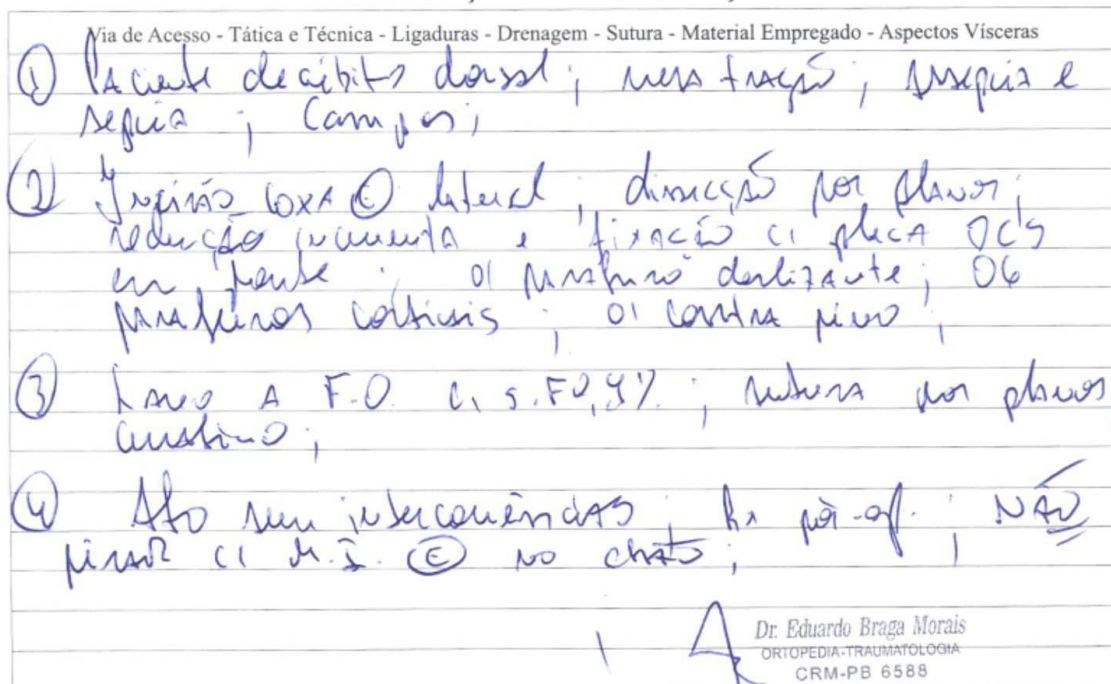 Via de Acesso - Tática e Técnica - Ligaduras - Drenagem - Sutura - Material Empregado - Aspectos Vísceras
① Paciente decúbito dorsal; mesa tração; assepsia e
sepsia; Campos;
② Incisão coxa Ⓔ lateral; dissecção por planos;
redução incruenta e fixação c/ placa DCS
em ponte; 01 parafuso deslizante; 06
parafusos corticais; 01 contra pino;
③ Lavo a F.O. c/ s.F 0,9%; sutura por planos
curativo;
④ Ato sem intercorrências; Rx pós-op.; NÃO
pisar c/ M.I. Ⓔ no chão;
Dr. Eduardo Braga Morais
ORTOPEDIA-TRAUMATOLOGIA
CRM-PB 6588